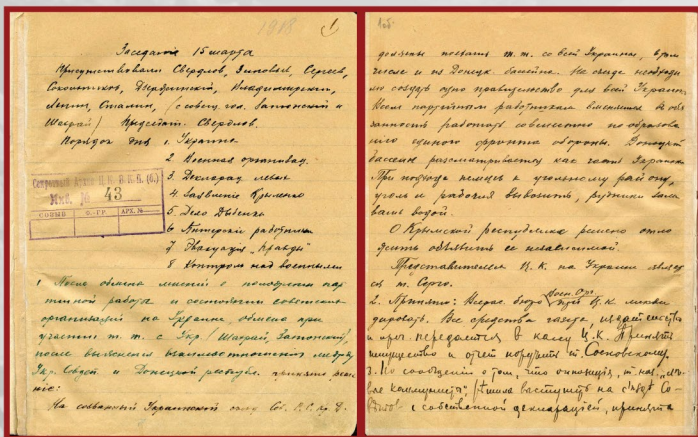 1918
1
Заседание 15 марта
Присутствовали Свердлов, Зиновьев, Сергеев,
Сокольников, Дзержинский, Владимирский,
Ленин, Сталин, (с совещ. гол. Затонский и
Шахрай) Председат. Свердлов.
Порядок дня 1. Украина
2 Военная организац.
3 Декларац левых
4 Заявление Крыленко
5 Дело Дыбенко
6 Питерские работники
7 Эвакуация "Правды"
8 Контроль над военными
Секретный Архив Ц. К. В. К. П. (б.)
Инв. № 43
СОЗЫВ Ф.-ГР АРХ. №
1 После обмена мнений о положении пар
тийной работы и состоянии советских
организаций на Украине обмена при
участии т. т. с Укр / Шахрай, Затонский,
после выяснения взаимоотношений между
Укр. Советск и Донецкой республ. принято реше
ние:
На созванный Украинский съезд Сов.
1об.
должны поехать т. т. со всей Украины, в том
числе и из Донецк. бассейна. На съезде необходи
мо создать одно правительство для всей Украины
Всем партийным работникам вменяется в обя
занность работать совместно по образова
нию единого фронта обороны. Донецкий
бассейн рассматривается как часть Украины
При подходе немцев к угольному району,
уголь и рабочих вывозить, рудники зали
вать водой.
О Крымской республике решено отло
жить объявить ее независимой.
Представителем Ц. К. на Украине являет
ся т. Серго.
2. Принято: бюро Воен. Орг при Ц. К. ликви
дировать. Все средства газета, издательство
и проч. передаются в кассу Ц. К. Принять
имущество и отчет поручить т. Сосновскому.
3. По сообщении о том, что оппозиция, т. наз. "ле
вые коммунисты", решила выступить на съезд Со
ветов с собственной декларацией, принята